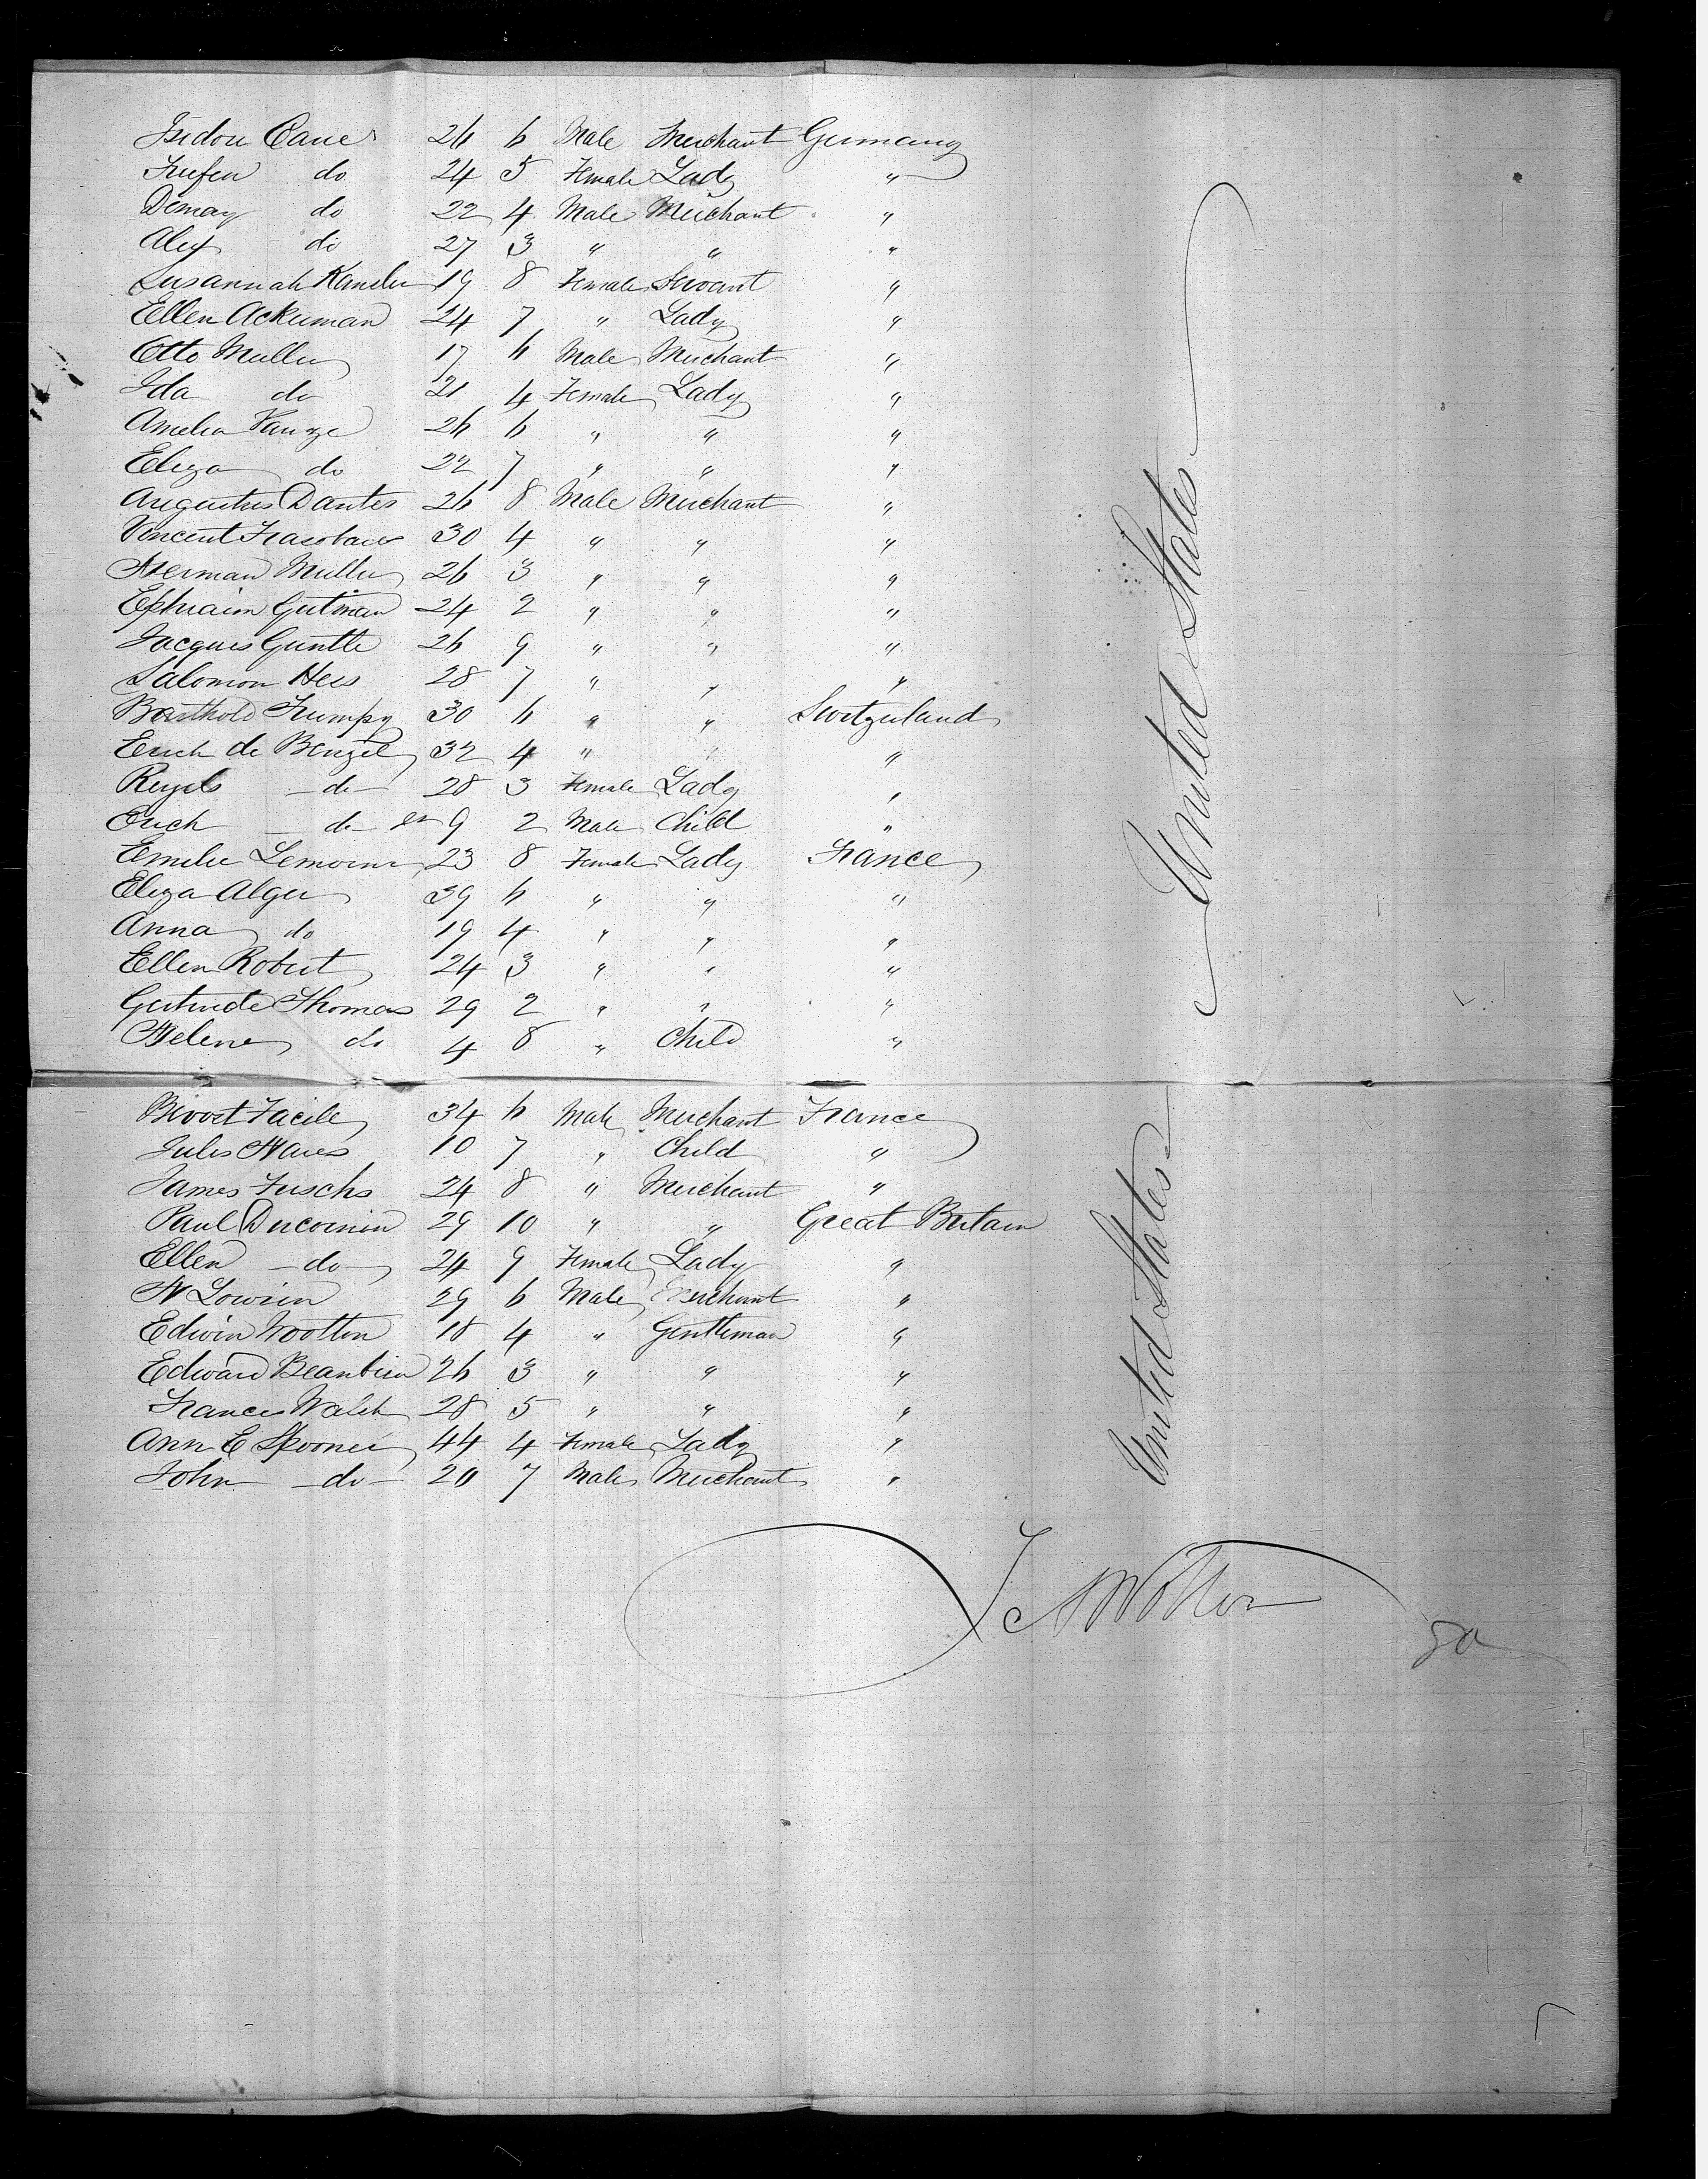 Isidou Cane 26 6 Male Merchant Germany
Frefen do 24 5 Female Lady "
Demay do 22 4 Male Merchant "
Aley do 27 3 " " "
Susannah Kansler 19 8 Female Servant "
Ellen Ackerman 24 7 " Lady "
Otto Muller 17 6 Male Merchant "
Ida do 21 4 Female Lady "
Amelia Vange 26 6 " " "
Eliza do 22 7 " " "
Augustus Dantes 26 8 Male Merchant "
Vincent 30 4 " " "
Herman Muller 26 3 " " "
Ephraim Gutman 24 2 " " "
Jacques Guntle 26 9 " " "
Salomon Hess 28 7 " " "
Barthold Trumpy 30 6 " " Switzerland
Erich de Benzel 32 4 " " "
do 28 3 Female Lady "
Erich do 9 2 Male Child "
Emelie Lemoine 23 8 Female Lady France
Eliza Alger 39 6 " " "
Anna do 19 4 " " "
Ellen Robert 24 3 " " "
Gertrude Thomas 29 2 " " "
Helene do 4 8 " Child "
United States
Facile 34 6 Male Merchant France
Jules Haves 10 7 " Child "
James Fuschs 24 8 " Merchant "
Paul Ducornin 29 10 " " Great Britain
Ellen do 24 9 Female Lady "
H Lowrin 29 6 Male Merchant "
Edwin Wotton 18 4 " Gentleman "
Edward Beaubien 26 3 " " "
Frances Walsh 28 5 " " "
Ann E Spooner 44 4 Female Lady "
John do 20 7 Male Merchant "
United States
Wotton